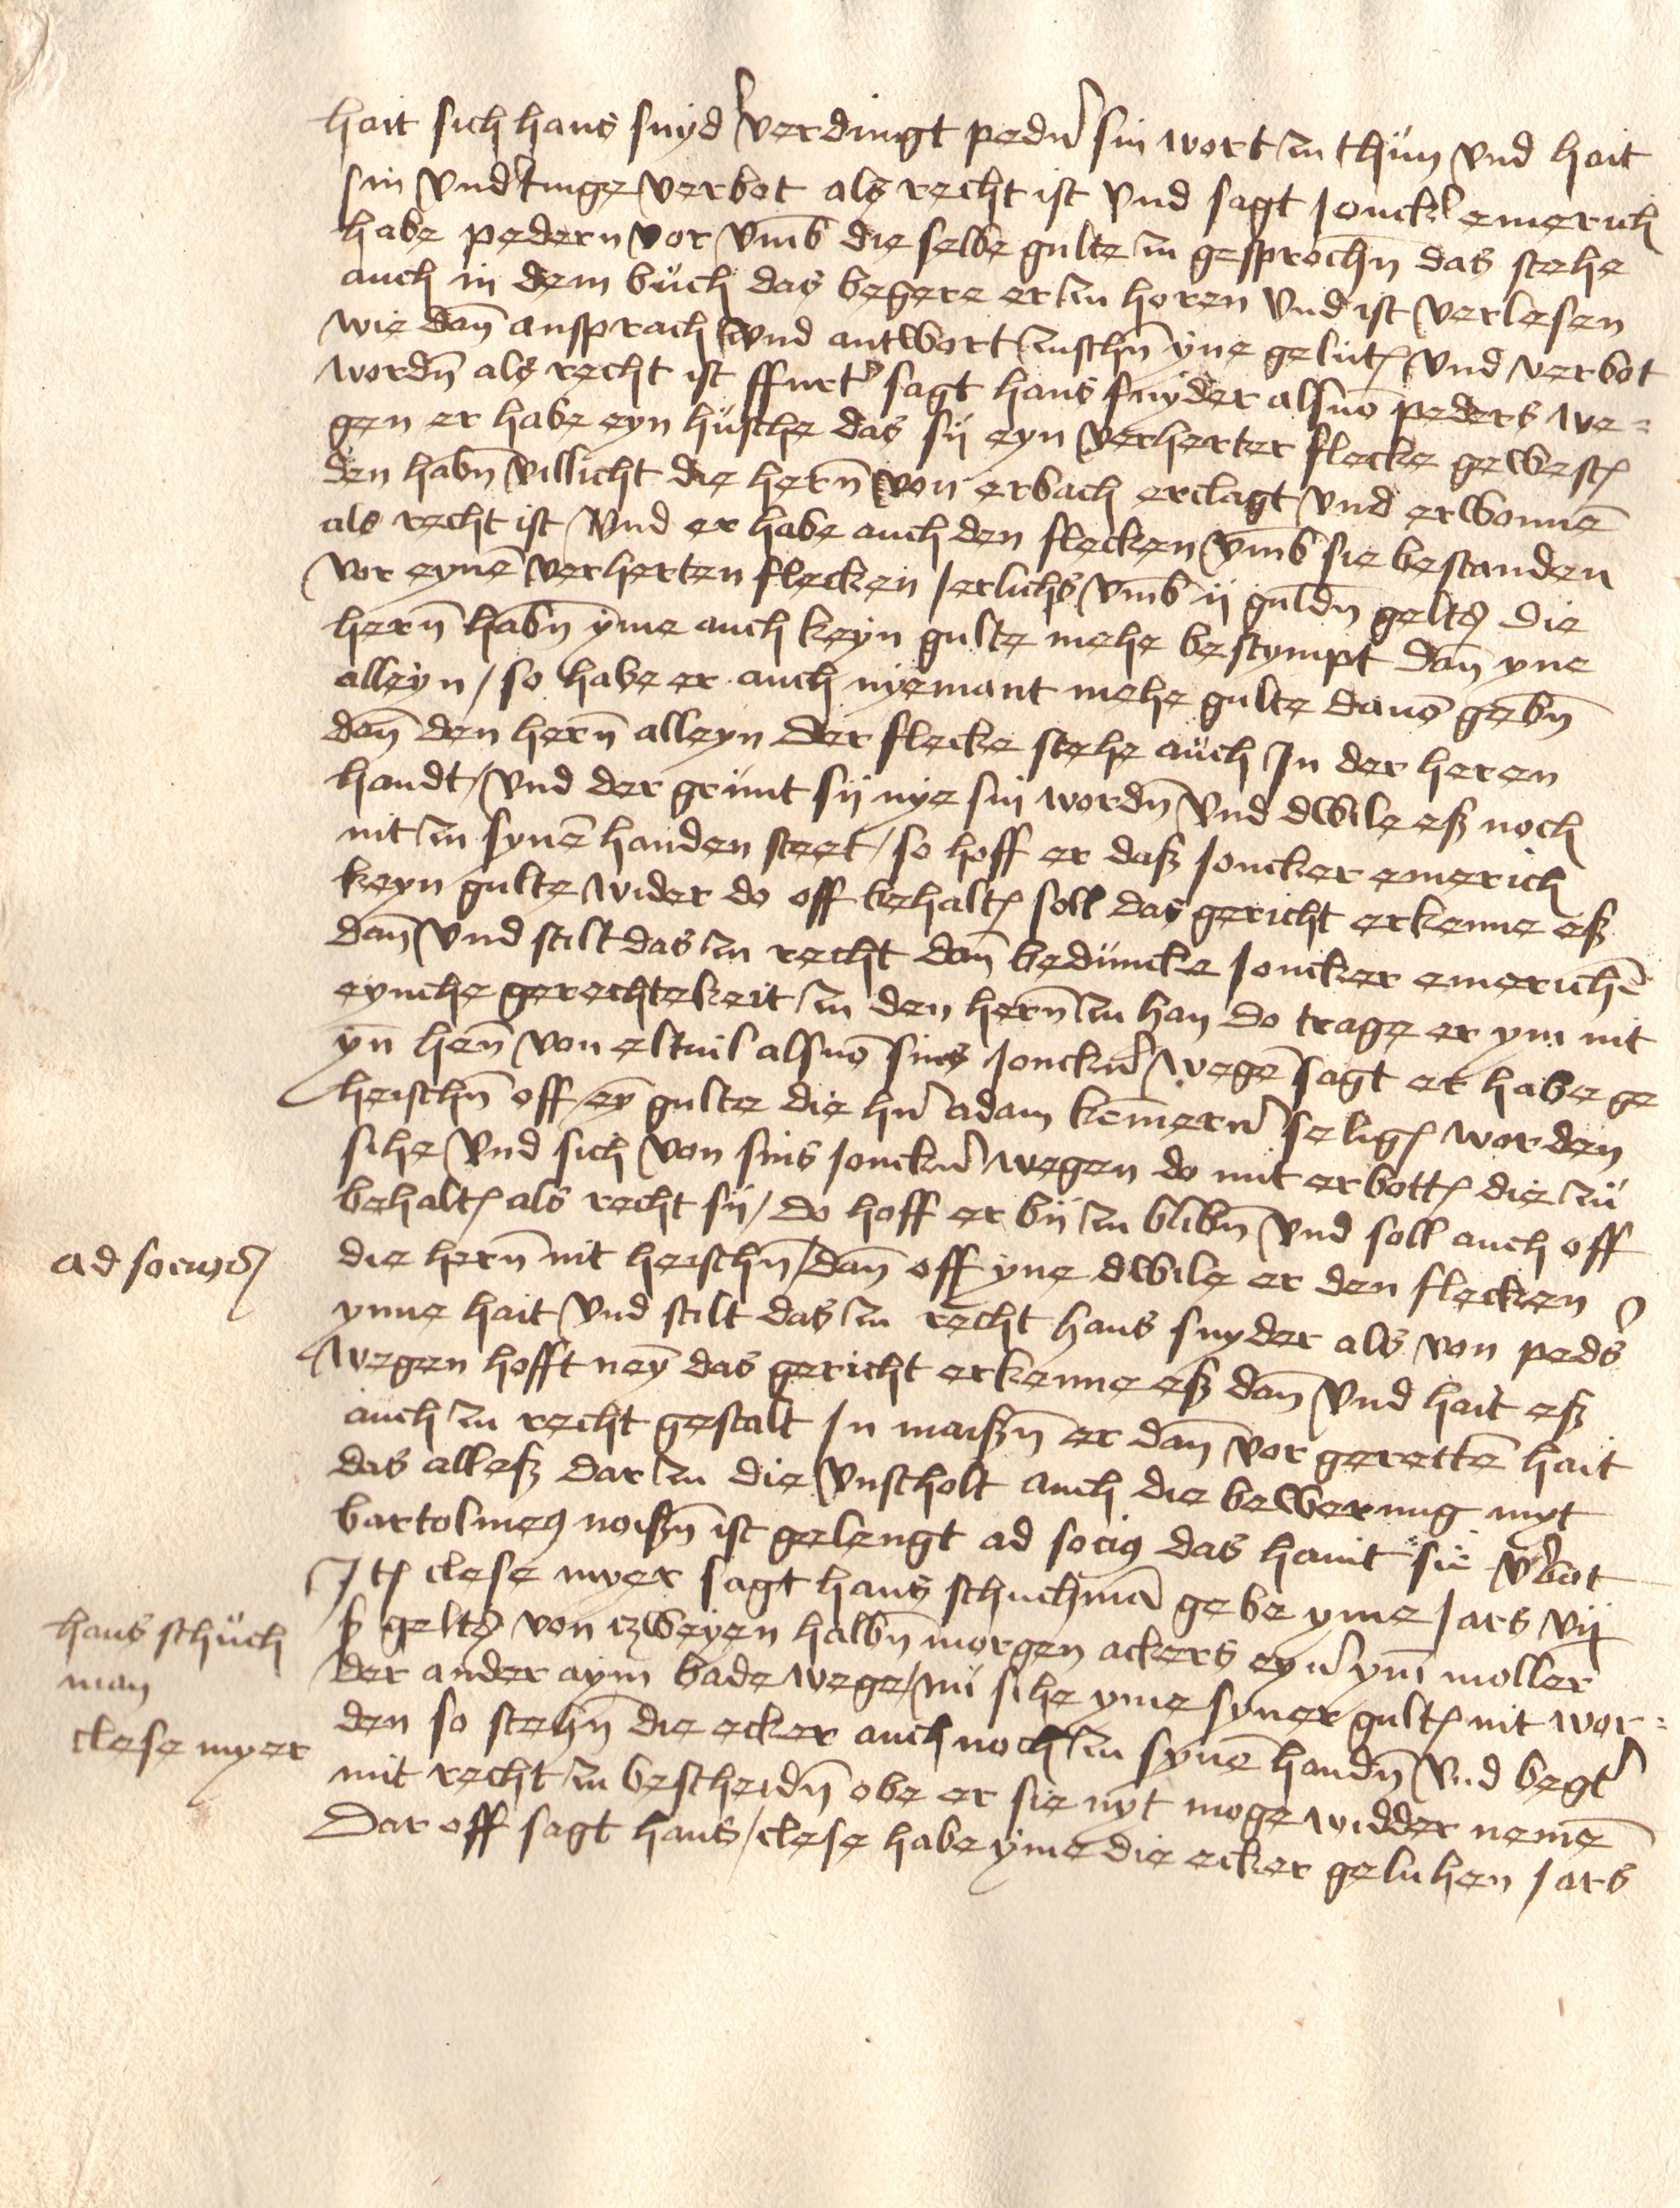 hait sich hans snyd' verdingt peder' sin wort zu thün vnd hait
sin vnd'tinge verbot als recht ist vnd sagt Jonck' emerich
habe pedern vor vm̄b die selbe gulte zu gesprochn̄ das stehe
auch in dem büch das begere er zu horen vnd ist verlesen
wie dan̄ ansprach vnd antwort zuschn̄ yne gelut͛ vnd verbot
wordn̄ als recht ist ffurt' sagt hans snyder als von peders we=
gen er habe eyn hüsche das sij eyn verherter flecke gewest͛
den habn̄ villicht die hern̄ von erbach erclagt vnd erwonnē
als recht ist vnd er habe auch den flecken vm̄b sie bestanden
vor eynē verherten flecken Jerlichs vm̄b ij guldn̄ gelts die
hern̄ habn̄ yme auch keyn gulte mehe bestympt dan̄ yne
alleyn / so habe er auch nyemant mehe gulte dauō gebn̄
dan̄ den hern̄ alleyn der flecke stehe aüch Jn der heren
handt / vnd der grünt sij nye sin wordn̄ vnd dwile eß noch
nit zu synē handen steet / so hoff er daß Joncker emerich
keyn gulte wider do off behalt͛ soll das gericht erkenne eß
dan̄ vnd stilt das zu recht dan̄ bedüncke Joncker emerichē
eynche gerechtekeit zu den hern̄ zu han do trage er ym nit
yn̄ hen̄ von eltuil als uō sins Jonck' wegē sagt er habe ge
heischn̄ off ey̅ gulte die h' adam kēmerer' selig͛ worden
sihe vnd sich von sins Jonck' wegen do mit erbott͛ die zü
behalt͛ als recht sij / do hoff er bij zu blibn̄ vnd soll auch off
ad socios
die hern̄ nit heischn̄ / dan̄ off yne dwile er den flecken
ynne hait vnd stilt das zu recht hans snyder als von ped's
wegen hofft ney̅ das gericht erkenne eß dan̄ vnd hait eß
auch zu recht gestalt Jn maißn̄ er dan̄ vor gerettē hait
das alleß dar zu die vnscholt auch die bewerung myt
bartolmeꝯ noißn̄ ist gelengt ad sociꝯ das haint sie v'bot
Jt͛ clese myer sagt hans schuchmā gebe yme Jars vij
hans schüch
man
clese myer
ß gelts von zweyen halbn̄ morgen ackers eyn' ym̄ moller
der ander aym bade wege / nü sihe yme syner gult͛ nit wor=
den so stehn̄ die ecker auch noch zu synē handn̄ vnd begt'
mit recht zu bescheidn̄ obe er sie nyt moge widder nemē
Dar off sagt hans / clese habe yme die ecker geluhen Jars